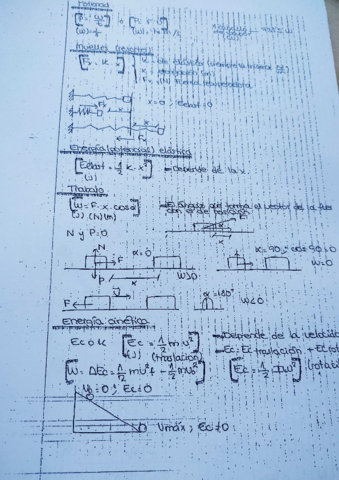 Potencia
[P = W/t] = [P = F · v]
(W) = J/s (W) = N·m/s
Muelles (resortes)
[Fx = K · x]
K: cte elástica
x: elongación (m)
Fx: (N) Fuerza recuperadora
x=0; Eelast=0
Fx
x
Energía (potencial) elástica
[Eelast = 1/2 K·x²] → Depende de la x.
(J)
Trabajo
[W = F·x·cosα] → El ángulo que forma el vector de la fuerza
con el de posición
(J) (N)(m)
N y P=0
N F α=0 α=90° cos 90=0
P x W>0 W=0
F α=180° W<0
Energía cinética
Ec o K [Ec = 1/2 m v²] → Depende de la velocidad
(J) (traslación) → Ec: Ec traslación + Ec rot
[W = ΔEc = 1/2 mv²f - 1/2 mv²0] [Ec = 1/2 Iω²] (rota
v0=0; Ec=0
Vmáx; Ec≠0